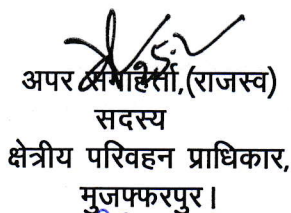 अपर समाहर्ता,(राजस्व)
सदस्य
क्षेत्रीय परिवहन प्राधिकार,
मुजफ्फरपुर।